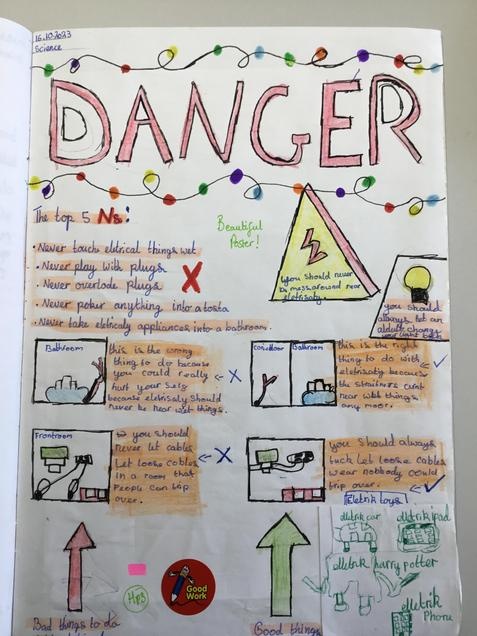 16.10.2023
Science
DANGER
The top 5 Ns!
Beautiful
Poster!
• Never touch eletrical things wet
• Never play with plugs
• Never overlode plugs
• Never poker anything into a tosta
• Never take eletricly appliances into a bathroom.
you should never
be mess around near
eletrisaty.
you should
always let an
adult change
your light bulb
Bathroom
this is the wrong
thing to do because
you could really
hurt your self
because eletrisaty should
never be near wet things.
Coridoor
Bathroom
this is the right
thing to do with
eletrisaty because
the
arnt
near wet things
any moor.
Frontroom
you should
never let cables
Let loose cables
in a room that
People can trip
over.
you should always
tuck let loose cables
wear nobody could
trip over.
Eletrik toys!
elletrik car
elletrik ipad
elletrik harry potter
elletrik
Phone
HP3
Good
Work
Bad things to do
Good things